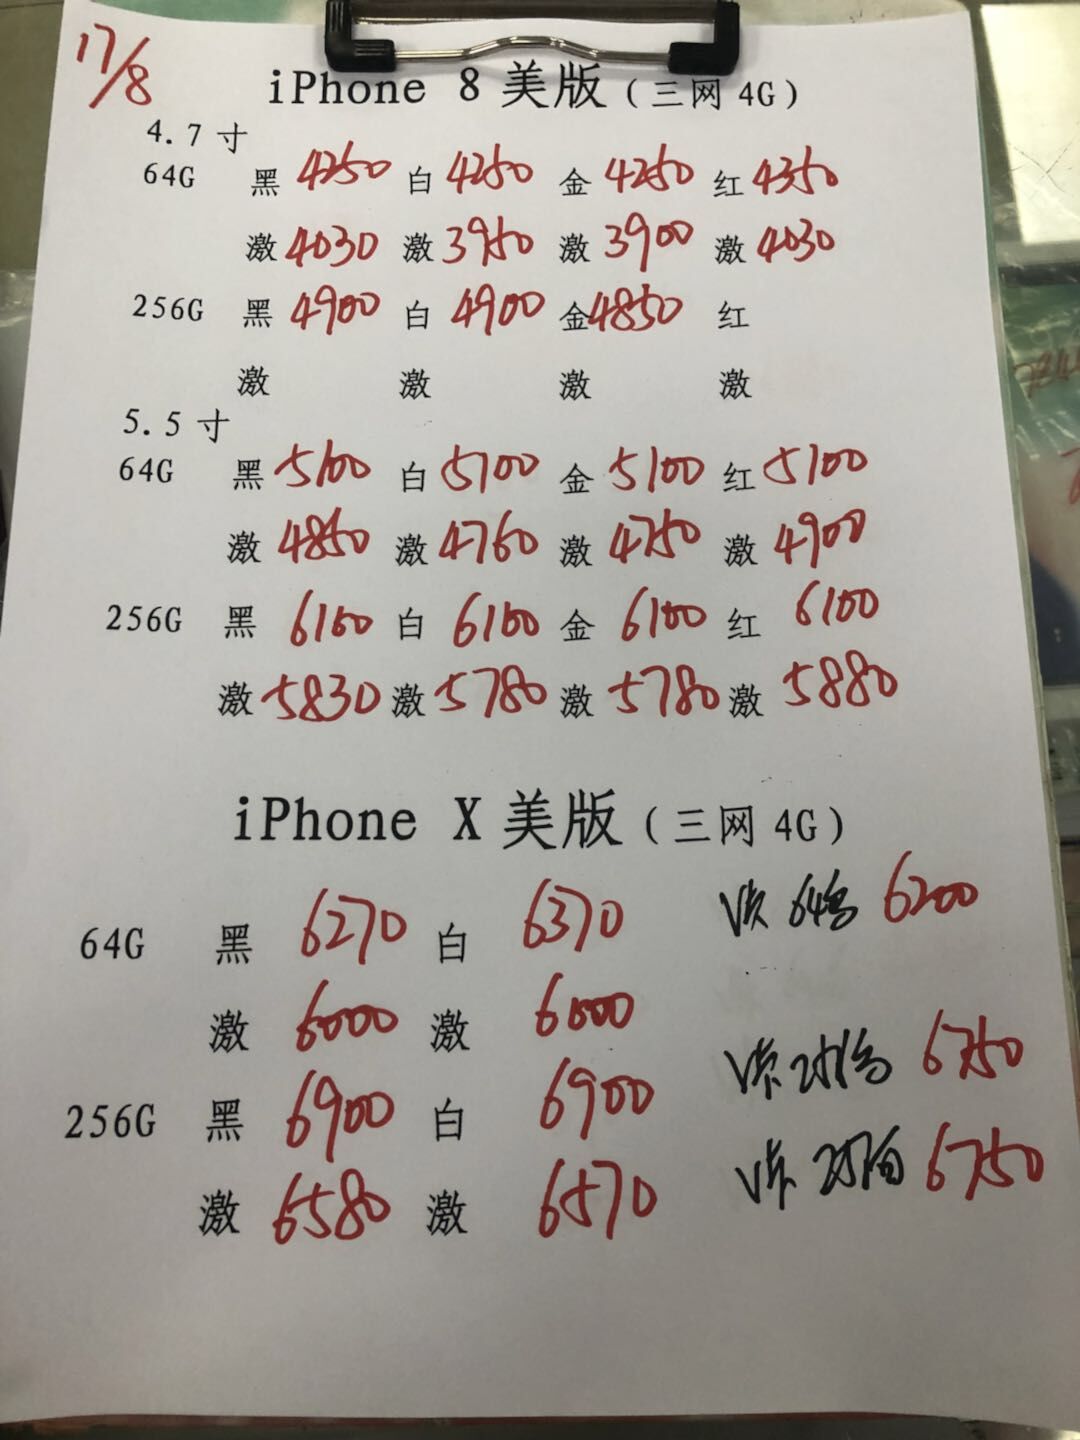 17/8
iPhone 8 美版（三网 4G）
4.7 寸
64G 黑 4250 白 4250 金 4250 红 4350
激 4030 激 3950 激 3900 激 4030
256G 黑 4900 白 4900 金 4850 红
激 激 激 激
5.5 寸
64G 黑 5100 白 5100 金 5100 红 5100
激 4850 激 4760 激 4750 激 4900
256G 黑 6100 白 6100 金 6100 红 6100
激 5830 激 5780 激 5780 激 5880
iPhone X 美版（三网 4G）
64G 黑 6270 白 6370 64 6200
激 6000 激 6000
256G 黑 6900 白 6900 6750
激 6580 激 6570 6750